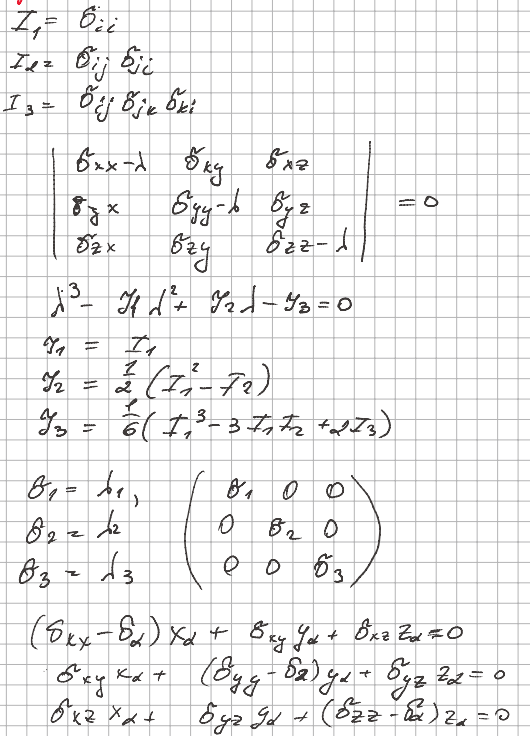 I₁ = σᵢᵢ
I₂ = σᵢⱼ σⱼᵢ
I₃ = σᵢⱼ σⱼₖ σₖᵢ
| σxx-λ σxy σxz |
| σyx σyy-λ σyz | = 0
| σzx σzy σzz-λ |
λ³ - J₁ λ² + J₂ λ - J₃ = 0
J₁ = I₁
J₂ = 1/2 (I₁² - I₂)
J₃ = 1/6 (I₁³ - 3 I₁ I₂ + 2 I₃)
σ₁ = λ₁, ( σ₁ 0 0 )
σ₂ = λ₂ ( 0 σ₂ 0 )
σ₃ = λ₃ ( 0 0 σ₃ )
(σxx - σα) xα + σxy yα + σxz zα = 0
σxy xα + (σyy - σα) yα + σyz zα = 0
σxz xα + σyz yα + (σzz - σα) zα = 0